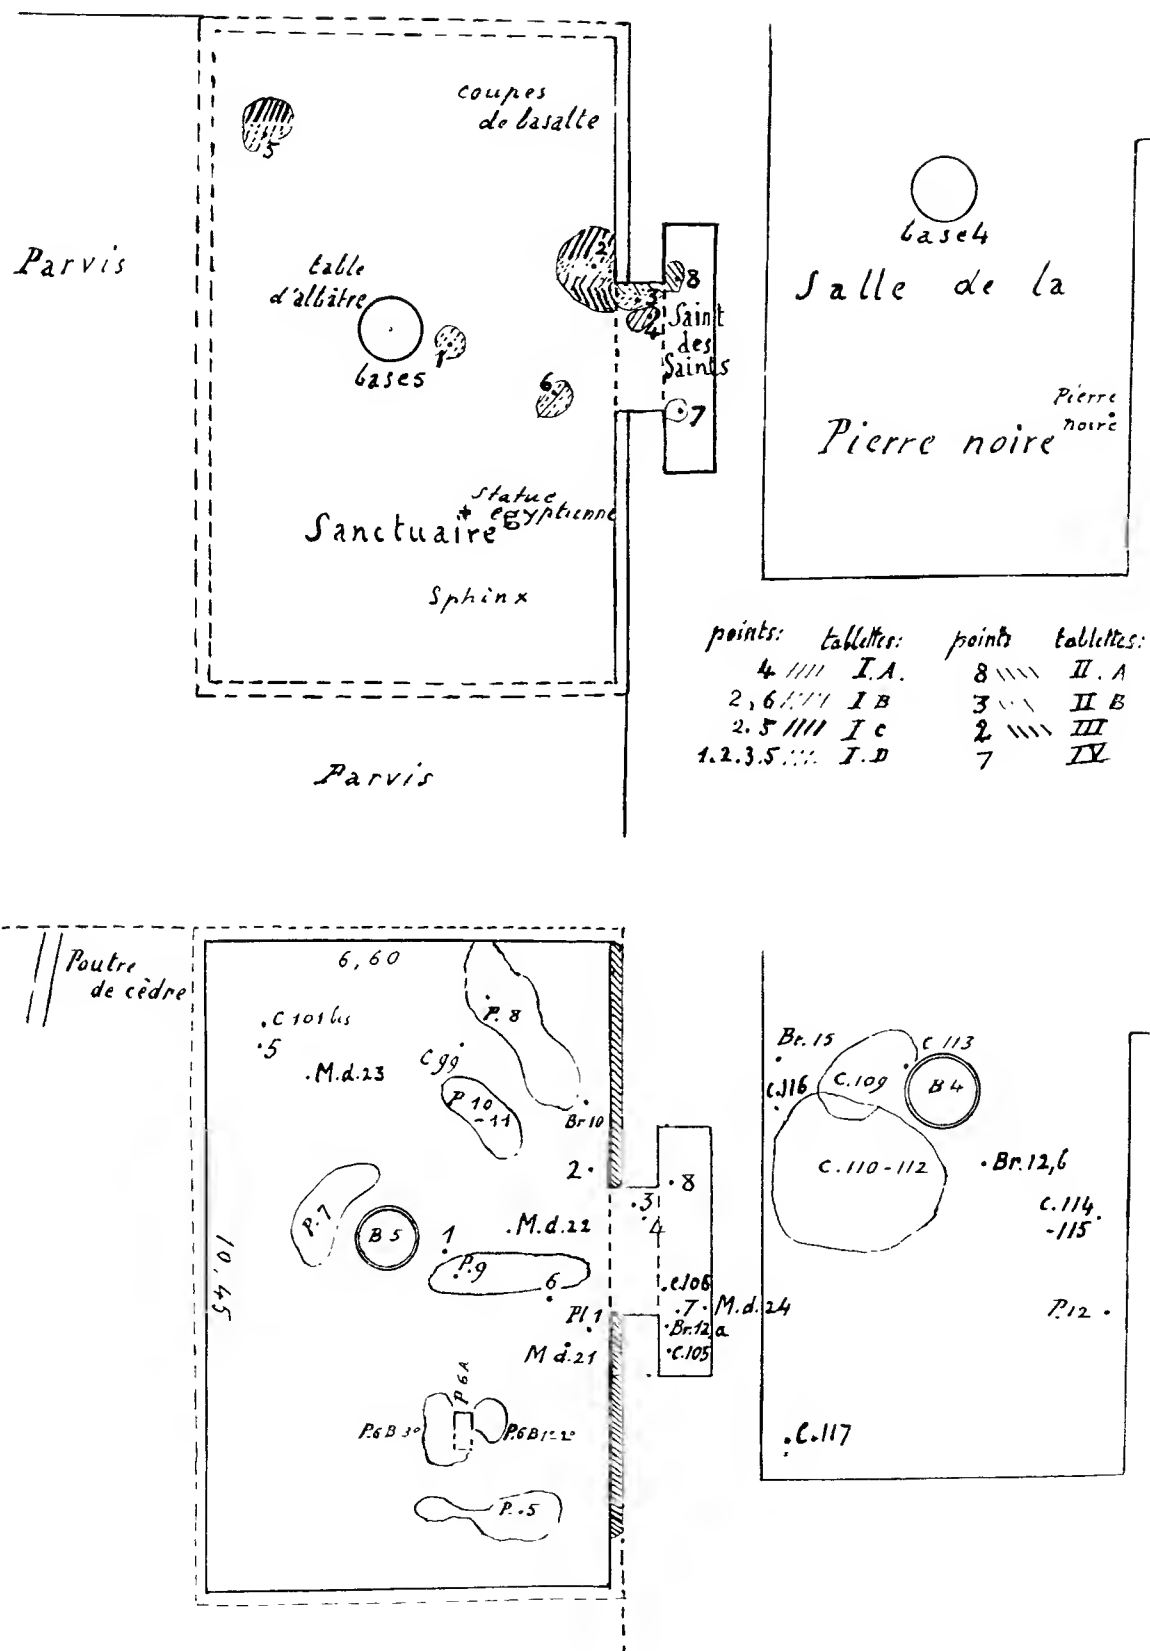 coupes
de basalte
5
Parvis
table
d'albâtre
base5
1
2
3
4
8
Saint
des
Saints
6
7
statue
egyptienne
Sanctuaire
Sphinx
base4
Salle de la
Pierre
noire
Pierre noire
points: tablettes: points tablettes:
4 I.A. 8 II.A
2,6 I B 3 II B
2.5 I c 2 III
1.2.3.5 I.D 7 IV
Parvis
Poutre
de cèdre
6,60
C 101 bis
5
M.d.23
C 99
P. 8
P 10
-11
Br 10
2
P.7
B 5
1
M.d.22
P.9
6
Pl 1
M d.21
10,45
3
4
8
C.106
7 M.d.24
Br.12,a
C.105
P 6 A
P.6 B 3°
P.6 B 1°-2°
P.5
Br.15
C 113
C.109
B 4
C.116
C.110-112
Br.12,6
C.114
-115
P.12
C.117